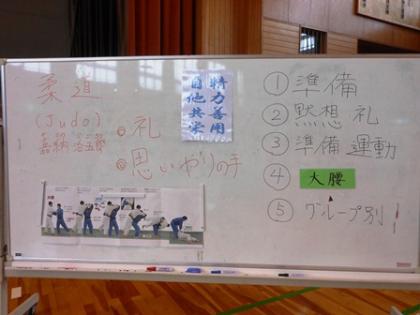 柔道
(Judo)
嘉納治五郎
礼
思いやりの手
精力善用
自他共栄
① 準備
② 黙想 礼
③ 準備運動
④ 大腰
⑤ グループ別